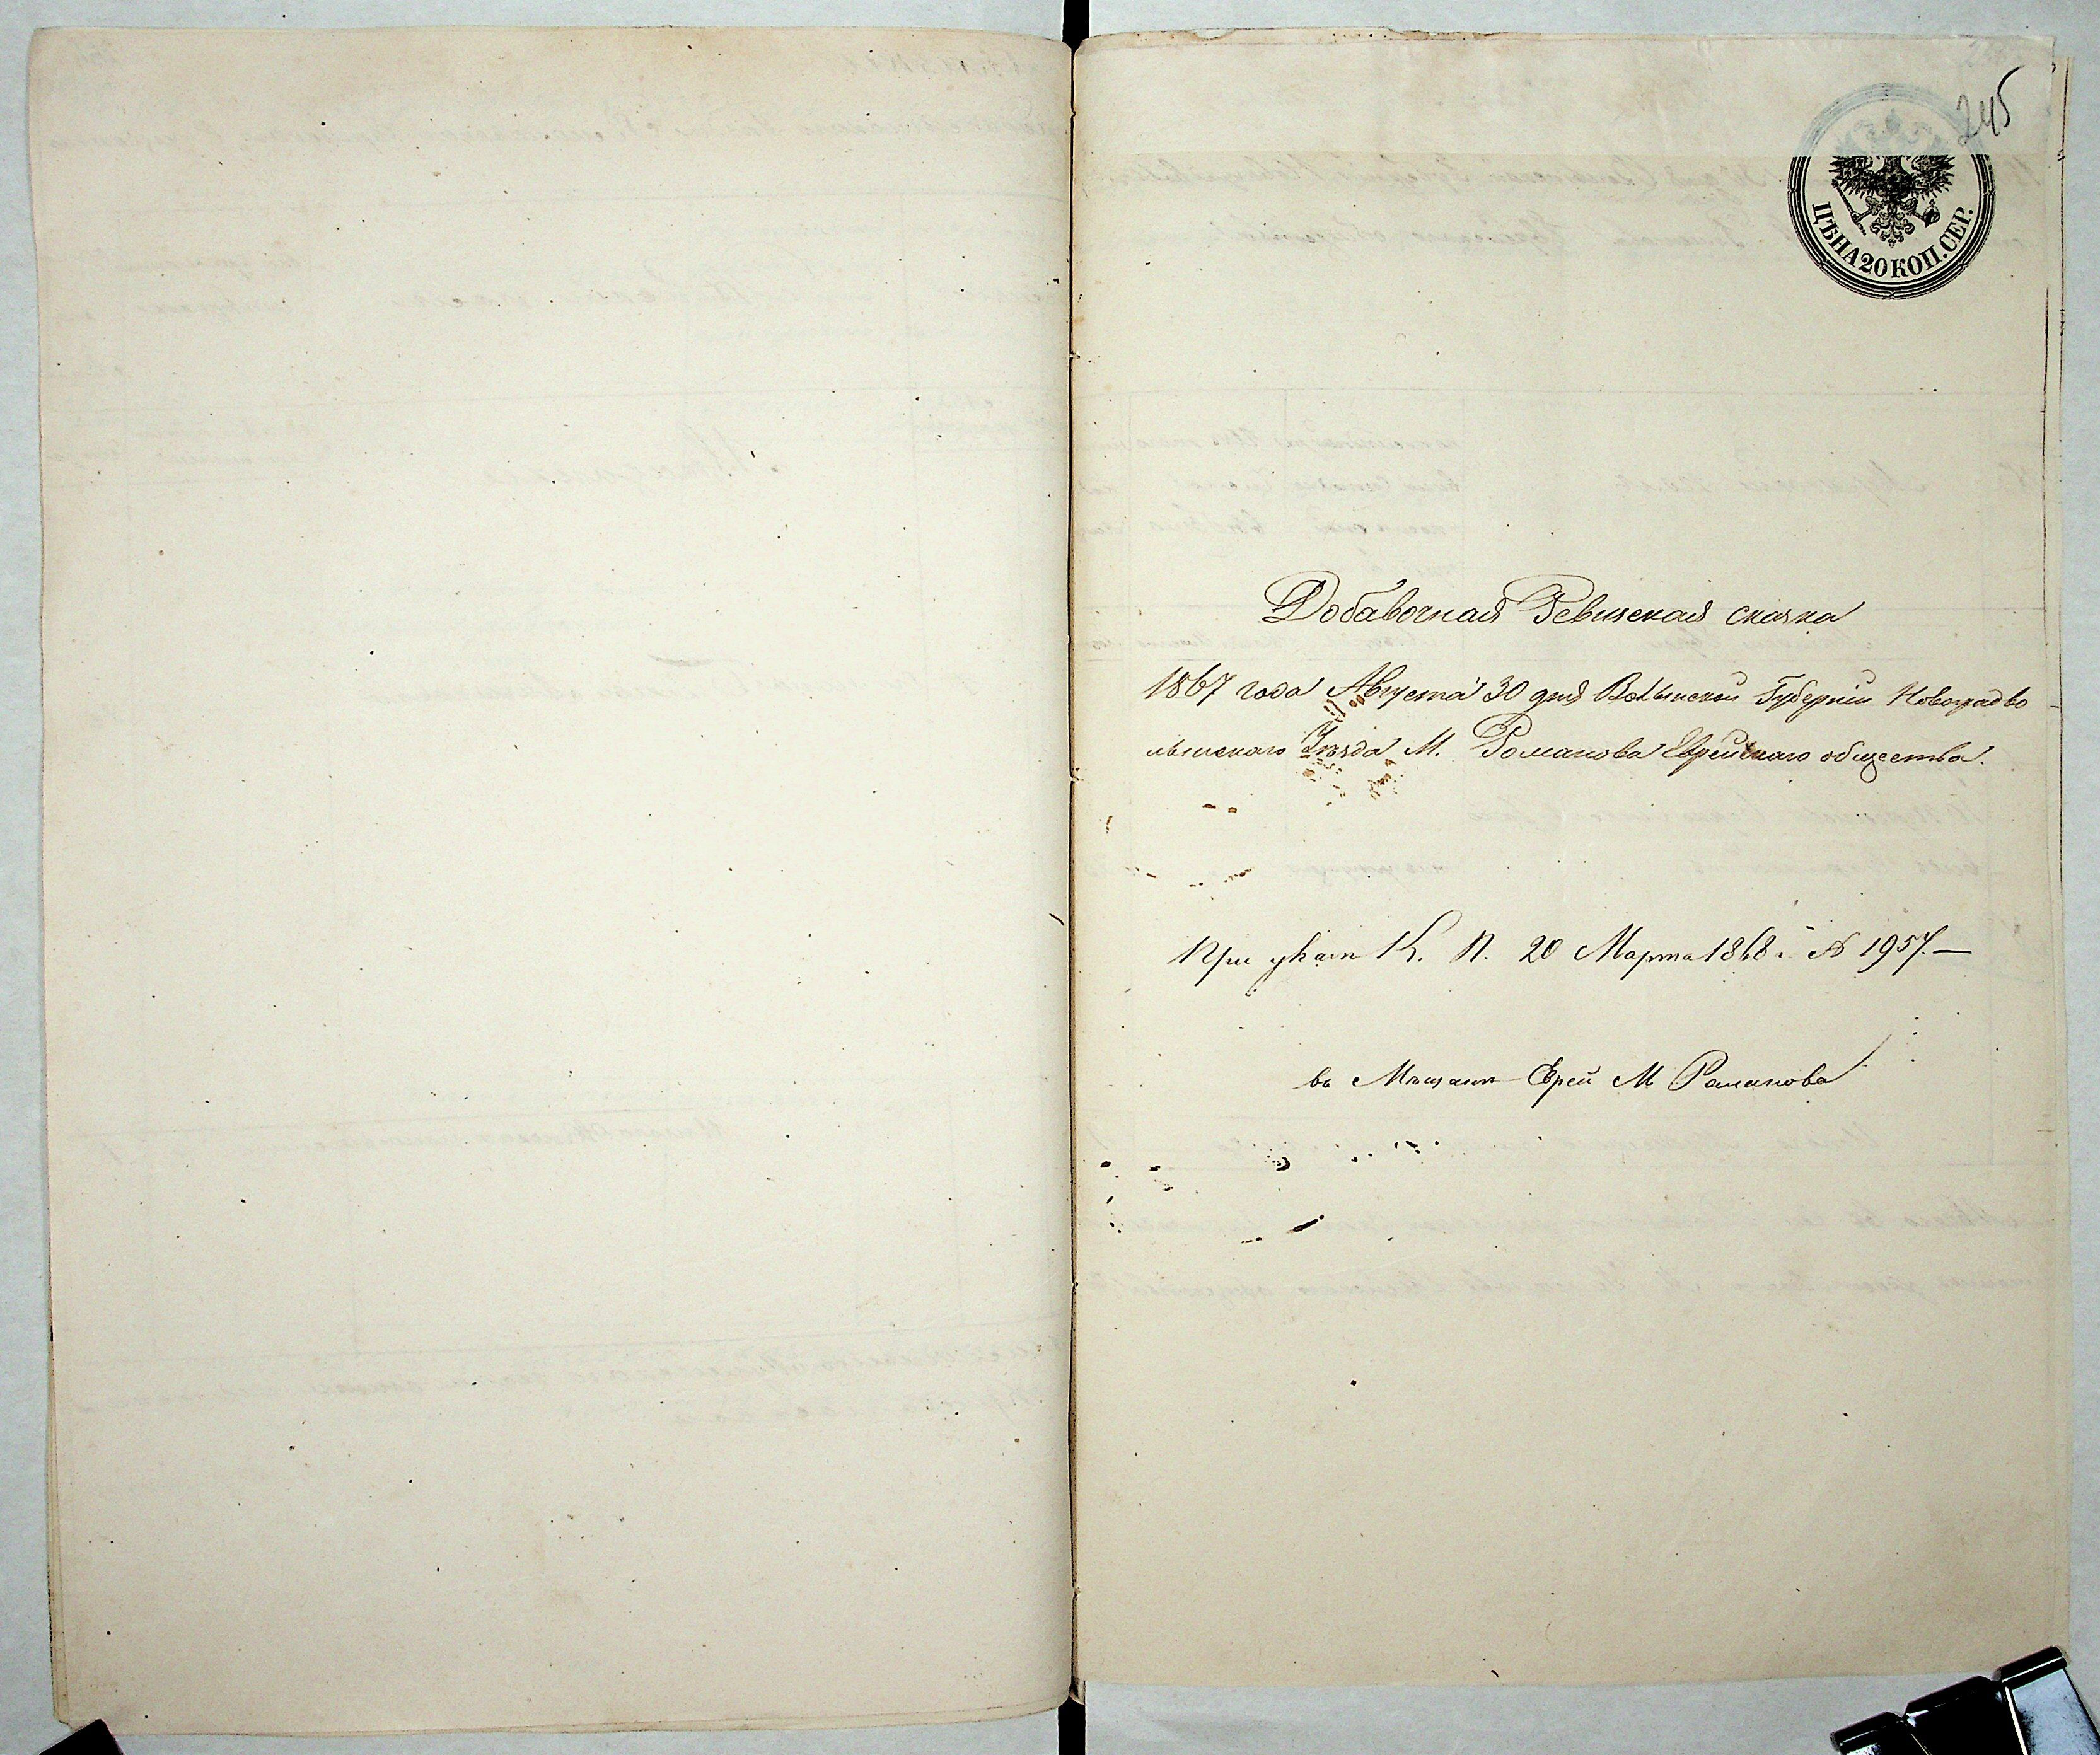 245
ЦѢНА 20 КОП. СЕР.
Добавочная Ревизская сказка
1867 года Августа 30 дня Волынской Губерніи Новоградво
лынскаго Уѣзда М. Романова Еврейскаго общества.
При указѣ К. П. 20 Марта 1868 г. № 1957. —
въ Мѣщане Евреи М Романова